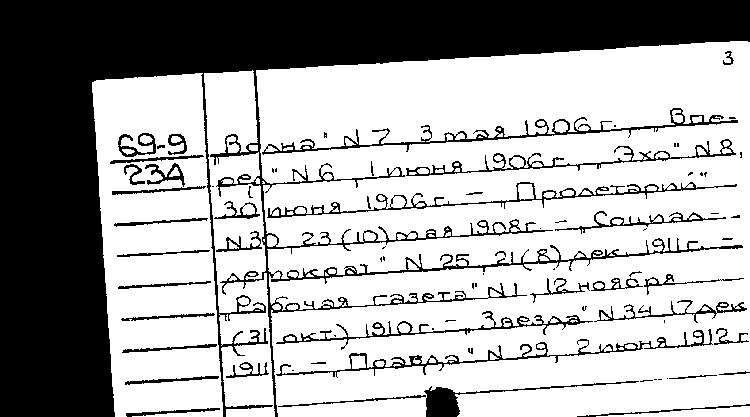 3
69-9
23А
„Волна" N 7, 3 мая 1906 г., „Впе-
ред" N 6, 1 июня 1906 г., „Эхо" N 8,
30 июня 1906 г. – „Пролетарий"
N 30, 23 (10) мая 1908 г. – „Социал-
демократ" N 25, 21 (8) дек. 1911 г. –
„Рабочая газета" N 1, 12 ноября
(31 окт.) 1910 г. – „Звезда" N 34, 17 дек
1911 г. – „Правда" N 29, 2 июня 1912 г